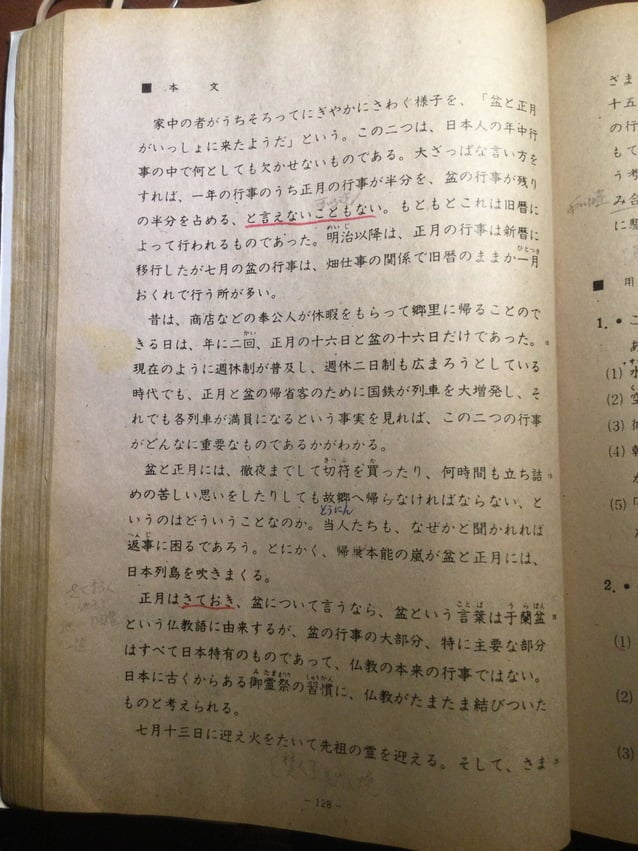 ■ 本 文
家中の者がうちそろってにぎやかにさわぐ様子を、「盆と正月
がいっしょに来たようだ」という。この二つは、日本人の年中行
事の中で何としても欠かせないものである。大ざっぱな言い方を
すれば、一年の行事のうち正月の行事が半分を、盆の行事が残り
の半分を占める、と言えないこともない。もともとこれは旧暦に
よって行われるものであった。明治以降は、正月の行事は新暦に
めいじ
ひとつき
移行したが七月の盆の行事は、畑仕事の関係で旧暦のままか一月
おくれで行う所が多い。
昔は、商店などの奉公人が休暇をもらって郷里に帰ることので
かい
きる日は、年に二回、正月の十六日と盆の十六日だけであった。
現在のように週休制が普及し、週休二日制も広まろうとしている
時代でも、正月と盆の帰省客のために国鉄が列車を大増発し、そ
れでも各列車が満員になるという事実を見れば、この二つの行事
がどんなに重要なものであるかがわかる。
きっぷ か
盆と正月には、徹夜までして切符を買ったり、何時間も立ち詰
めの苦しい思いをしたりしても故郷へ帰らなければならない、と
とうにん
いうのはどういうことなのか。当人たちも、なぜかと聞かれれば
へんじ
返事に困るであろう。とにかく、帰巣本能の嵐が盆と正月には、
日本列島を吹きまくる。
ことば うらぼん
正月はさておき、盆について言うなら、盆という言葉は于蘭盆
という仏教語に由来するが、盆の行事の大部分、特に主要な部分
はすべて日本特有のものであって、仏教の本来の行事ではない。
みたままつり しゅうかん
日本に古くからある御霊祭の習慣に、仏教がたまたま結びついた
ものと考えられる。
七月十三日に迎え火をたいて先祖の霊を迎える。そして、さま
- 128 -
ざま
十五
の行
もて
う考
み合
に
■ 用
1. • こ
あ
(1)
(2)
(3)
(4)
(5)
2. •
(1)
(2)
(3)